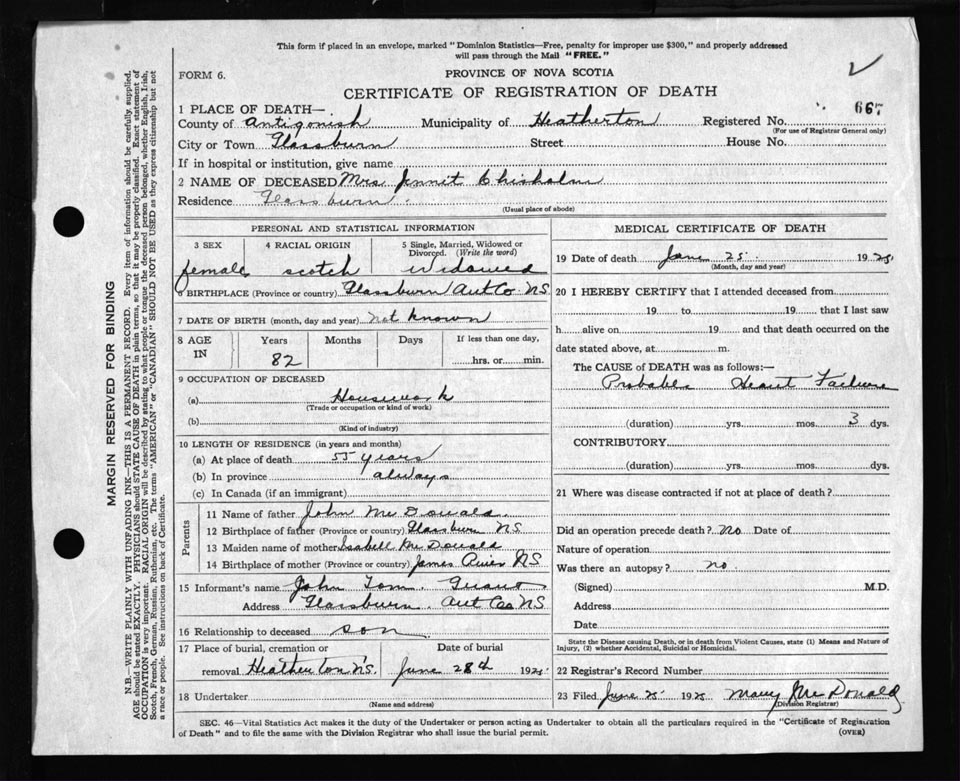 This form if placed in an envelope, marked "Dominion Statistics—Free, penalty for improper use $300," and properly addressed
will pass through the Mail "FREE."
FORM 6.
PROVINCE OF NOVA SCOTIA
CERTIFICATE OF REGISTRATION OF DEATH
1 PLACE OF DEATH—
County of Antigonish Municipality of Heatherton Registered No. 667
(For use of Registrar General only)
City or Town Glassburn Street House No.
If in hospital or institution, give name
2 NAME OF DECEASED Mrs Jennit Chisholm
Residence Glassburn
(Usual place of abode)
PERSONAL AND STATISTICAL INFORMATION
3 SEX 4 RACIAL ORIGIN 5 Single, Married, Widowed or
Divorced. (Write the word)
female scotch Widowed
6 BIRTHPLACE (Province or country) Glassburn Ant Co NS
7 DATE OF BIRTH (month, day and year) Not known
8 AGE Years Months Days If less than one day,
IN 82 hrs. or min.
9 OCCUPATION OF DECEASED
(a) Housework
(Trade or occupation or kind of work)
(b)
(Kind of industry)
10 LENGTH OF RESIDENCE (in years and months)
(a) At place of death 55 years
(b) In province always
(c) In Canada (if an immigrant)
Parents
11 Name of father John McDonald
12 Birthplace of father (Province or country) Glassburn NS
13 Maiden name of mother Isabell McDonald
14 Birthplace of mother (Province or country) James NS
15 Informant's name John Tom
Address Glassburn Ant Co NS
16 Relationship to deceased son
17 Place of burial, cremation or Date of burial
removal Heatherton NS June 28th 1925
18 Undertaker
(Name and address)
MEDICAL CERTIFICATE OF DEATH
19 Date of death June 25 1925
(Month, day and year)
20 I HEREBY CERTIFY that I attended deceased from
19 to 19 that I last saw
h alive on 19 and that death occurred on
date stated above, at m.
The CAUSE of DEATH was as follows:—
Probable Heart Failure
(duration) yrs. mos. 3 dys.
CONTRIBUTORY
(duration) yrs. mos. dys.
21 Where was disease contracted if not at place of death?
Did an operation precede death? No Date of
Nature of operation
Was there an autopsy? no
(Signed) M.D.
Address
Date
State the Disease causing Death, or in death from Violent Causes, state (1) Means and Nature of
Injury, (2) whether Accidental, Suicidal or Homicidal.
22 Registrar's Record Number
23 Filed June 25 1925 Mary McDonald
(Division Registrar)
SEC. 46—Vital Statistics Act makes it the duty of the Undertaker or person acting as Undertaker to obtain all the particulars required in the "Certificate of Registration
of Death" and to file the same with the Division Registrar who shall issue the burial permit. (OVER)
MARGIN RESERVED FOR BINDING
N.B.—WRITE PLAINLY WITH UNFADING INK—THIS IS A PERMANENT RECORD. Every item of information should be carefully supplied.
AGE should be stated EXACTLY. PHYSICIANS should STATE CAUSE OF DEATH in plain terms, so that it may be properly classified. Exact statement of
OCCUPATION is very important. RACIAL ORIGIN will be described by stating to what people or tongue the deceased person belonged, whether English, Irish,
Scotch, French, German, Russian, Ruthenian, etc. The terms "AMERICAN" or "CANADIAN" SHOULD NOT BE USED as they express citizenship but not
a race or people. See instructions on back of Certificate.